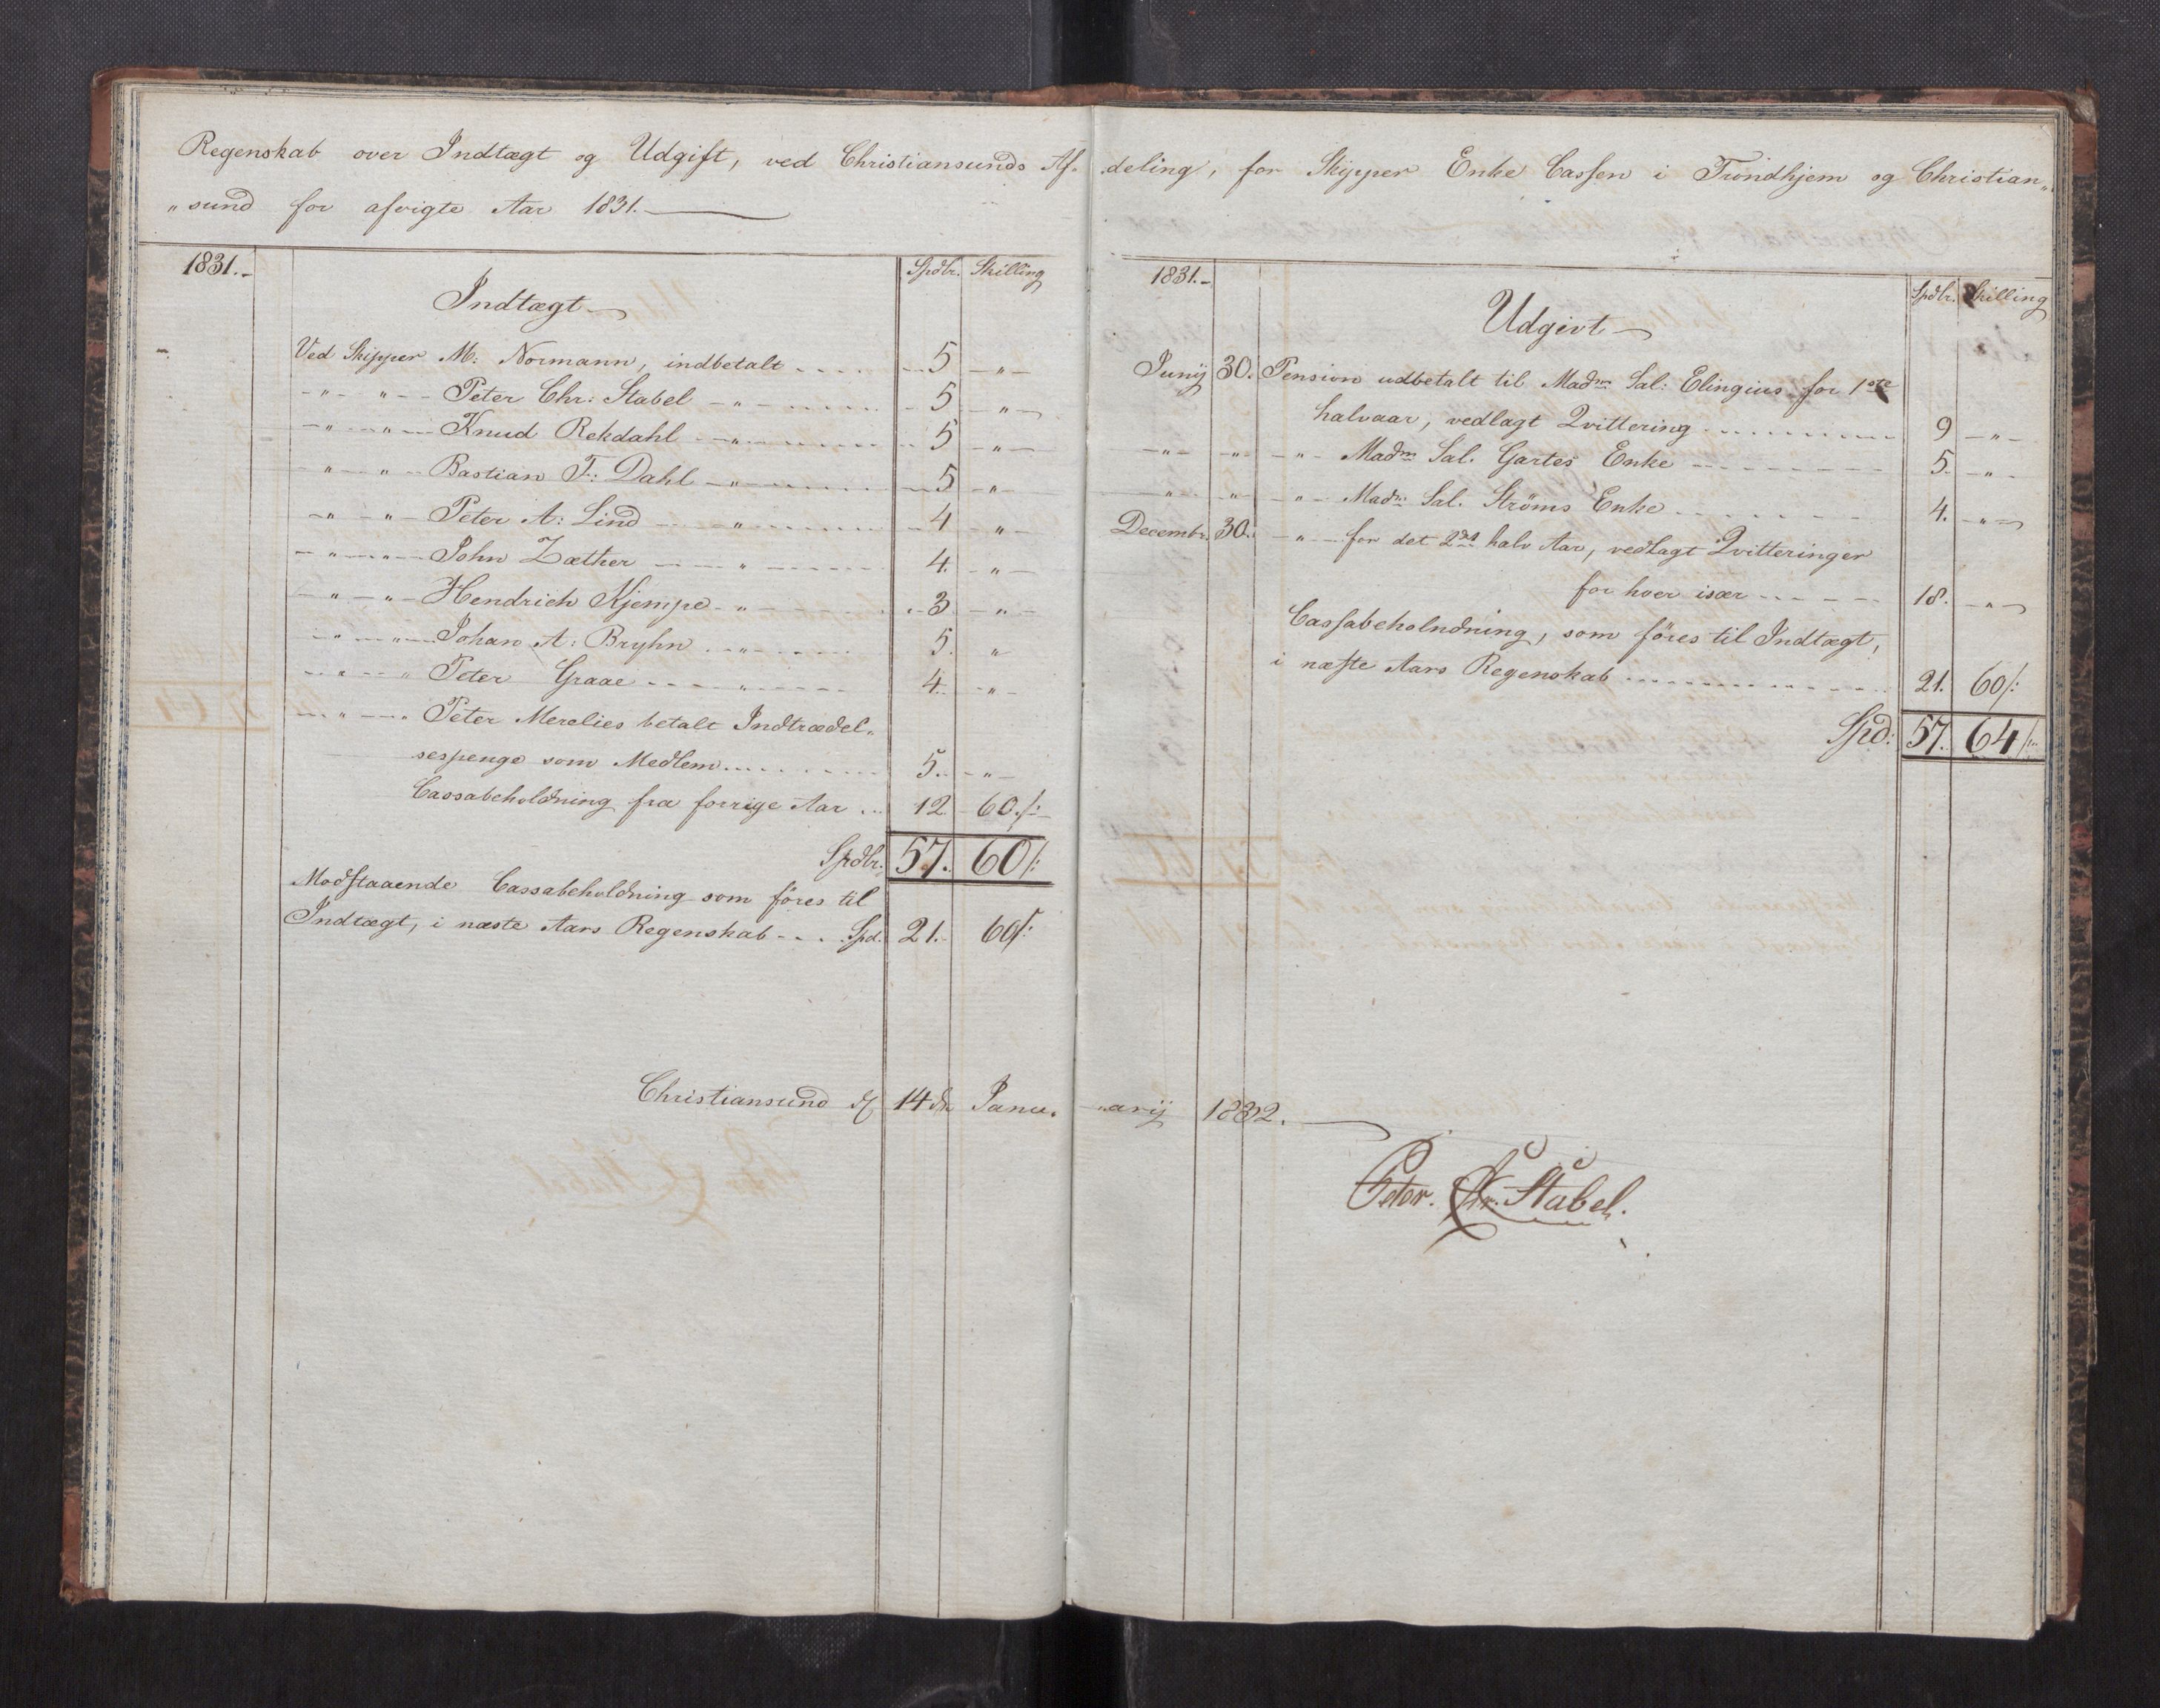 Regenskab over Indtægt og Udgift, ved Christiansunds Af- deling, for Skipper Enke Cassen i Trondhjem og Christian„
„sund for afvigte Aar 1831.
1831.- Spdlr. Skilling
Indtægt
Ved Skipper M: Normann, indbetalt .... 5 - " -
- " - " - Peter Chr: Stabel - " - .... 5 - " -
- " - " - Knud Rekdahl - " - .... 5 - " -
- " - " - Bastian F: Dahl - " - .... 5 - " -
- " - " - Peter A: Lind - " - .... 4 - " -
- " - " - John Zæther - " - .... 4. - " -
- " - " - Hendrich Kjempe - " - .... 3 - " -
- " - " - Johan A: Bryhn - " - .... 5. "
- " - " - Peter Graae - " - .... 4. - " -
- " - " Peter Merelies betalt Indtrædel„
sespenge som Medlem .... 5. - " -
Cassabeholdning fra forrige Aar ... 12. 60./:
Spdlr. 57. 60/:
Modstaaende Cassabeholdning som föres til
Indtægt, i næste Aars Regenskab ... Spd. 21. 60/:
1831.- Spdlr. Skilling
Udgivt
Junij 30. Pension udbetalt til Madm Sal: Elingius for 1ste
halvaar, vedlagt Qvittering .... 9 - " -
- " - - " - - " - Madm Sal. Gartes Enke .... 5. - " -
- " - - " - - " - Madm Sal. Ströms Enke .... 4. - " -
Decembr. 30. - " - for det 2det halv Aar, vedlagt Qvitteringer
for hver især .... 18. - " -
Cassabeholndning, som föres til Indtægt,
i næste Aars Regenskab .... 21. 60/:
Spd: 57. 64/:
Christiansund d 14de Janu„ „arij 1832.
Peter. Chr. Stabel.